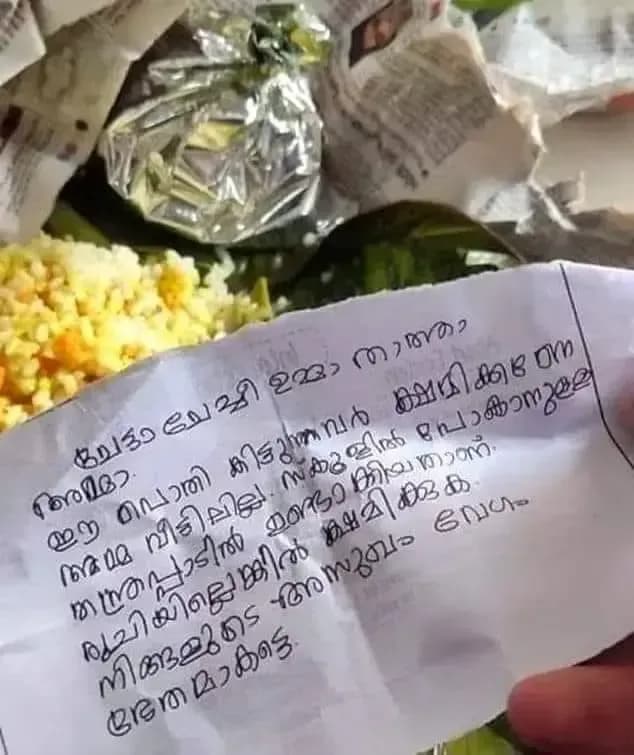 ചേട്ടാ ചേച്ചീ ഉമ്മാ താത്താ
അമ്മാ.
ഈ പൊതി കിട്ടുന്നവർ ക്ഷമിക്കണേ
അമ്മ വീട്ടിലില്ല. സ്കൂളിൽ പോകാനുള്ള
തന്ത്രപ്പാടിൽ ഉണ്ടാക്കിയതാണ്.
രുചിയില്ലെങ്കിൽ ക്ഷമിക്കുക.
നിങ്ങളുടെ അസുഖം വേഗം
ഭേതമാകട്ടെ.